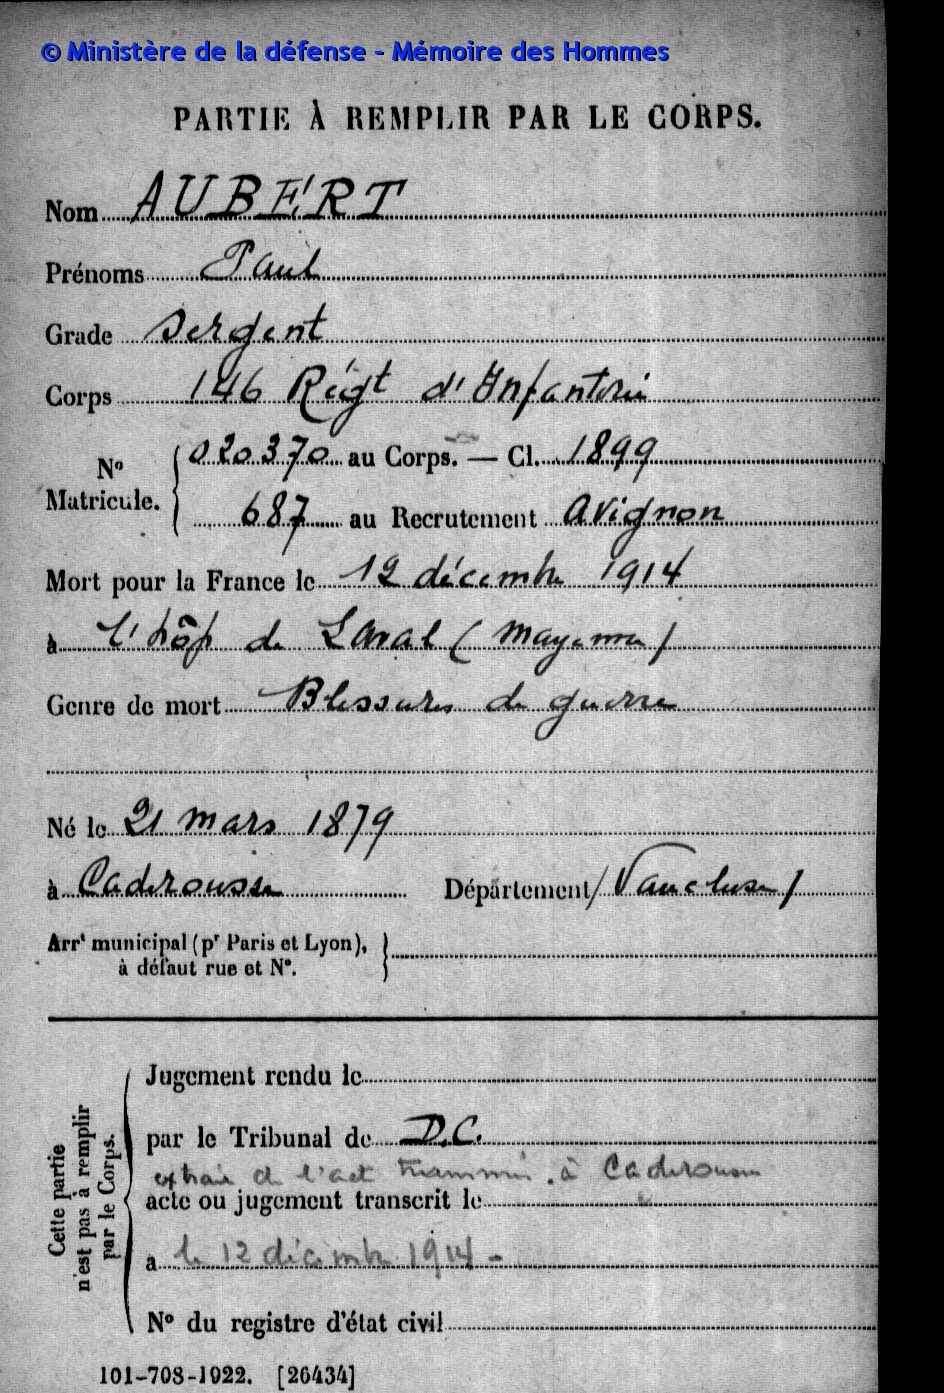 © Ministère de la défense - Mémoire des Hommes
PARTIE À REMPLIR PAR LE CORPS.
Nom AUBÉRT
Prénoms Paul
Grade Sergent
Corps 146 Régt d'Infanterie
No Matricule. 020370 au Corps. — Cl. 1899
687 au Recrutement Avignon
Mort pour la France le 12 décembre 1914
à l'hôp de Laval (Mayenne)
Genre de mort Blessures de guerre
Né le 21 mars 1879
à Caderousse Département (Vaucluse)
Arrt municipal (pr Paris et Lyon),
à défaut rue et N°.
Cette partie
n'est pas à remplir
par le Corps.
Jugement rendu le
par le Tribunal de D.C.
extrait de l'act transmis à Caderousse
acte ou jugement transcrit le
a le 12 décembre 1914 -
N° du registre d'état civil
101-708-1922. [26434]